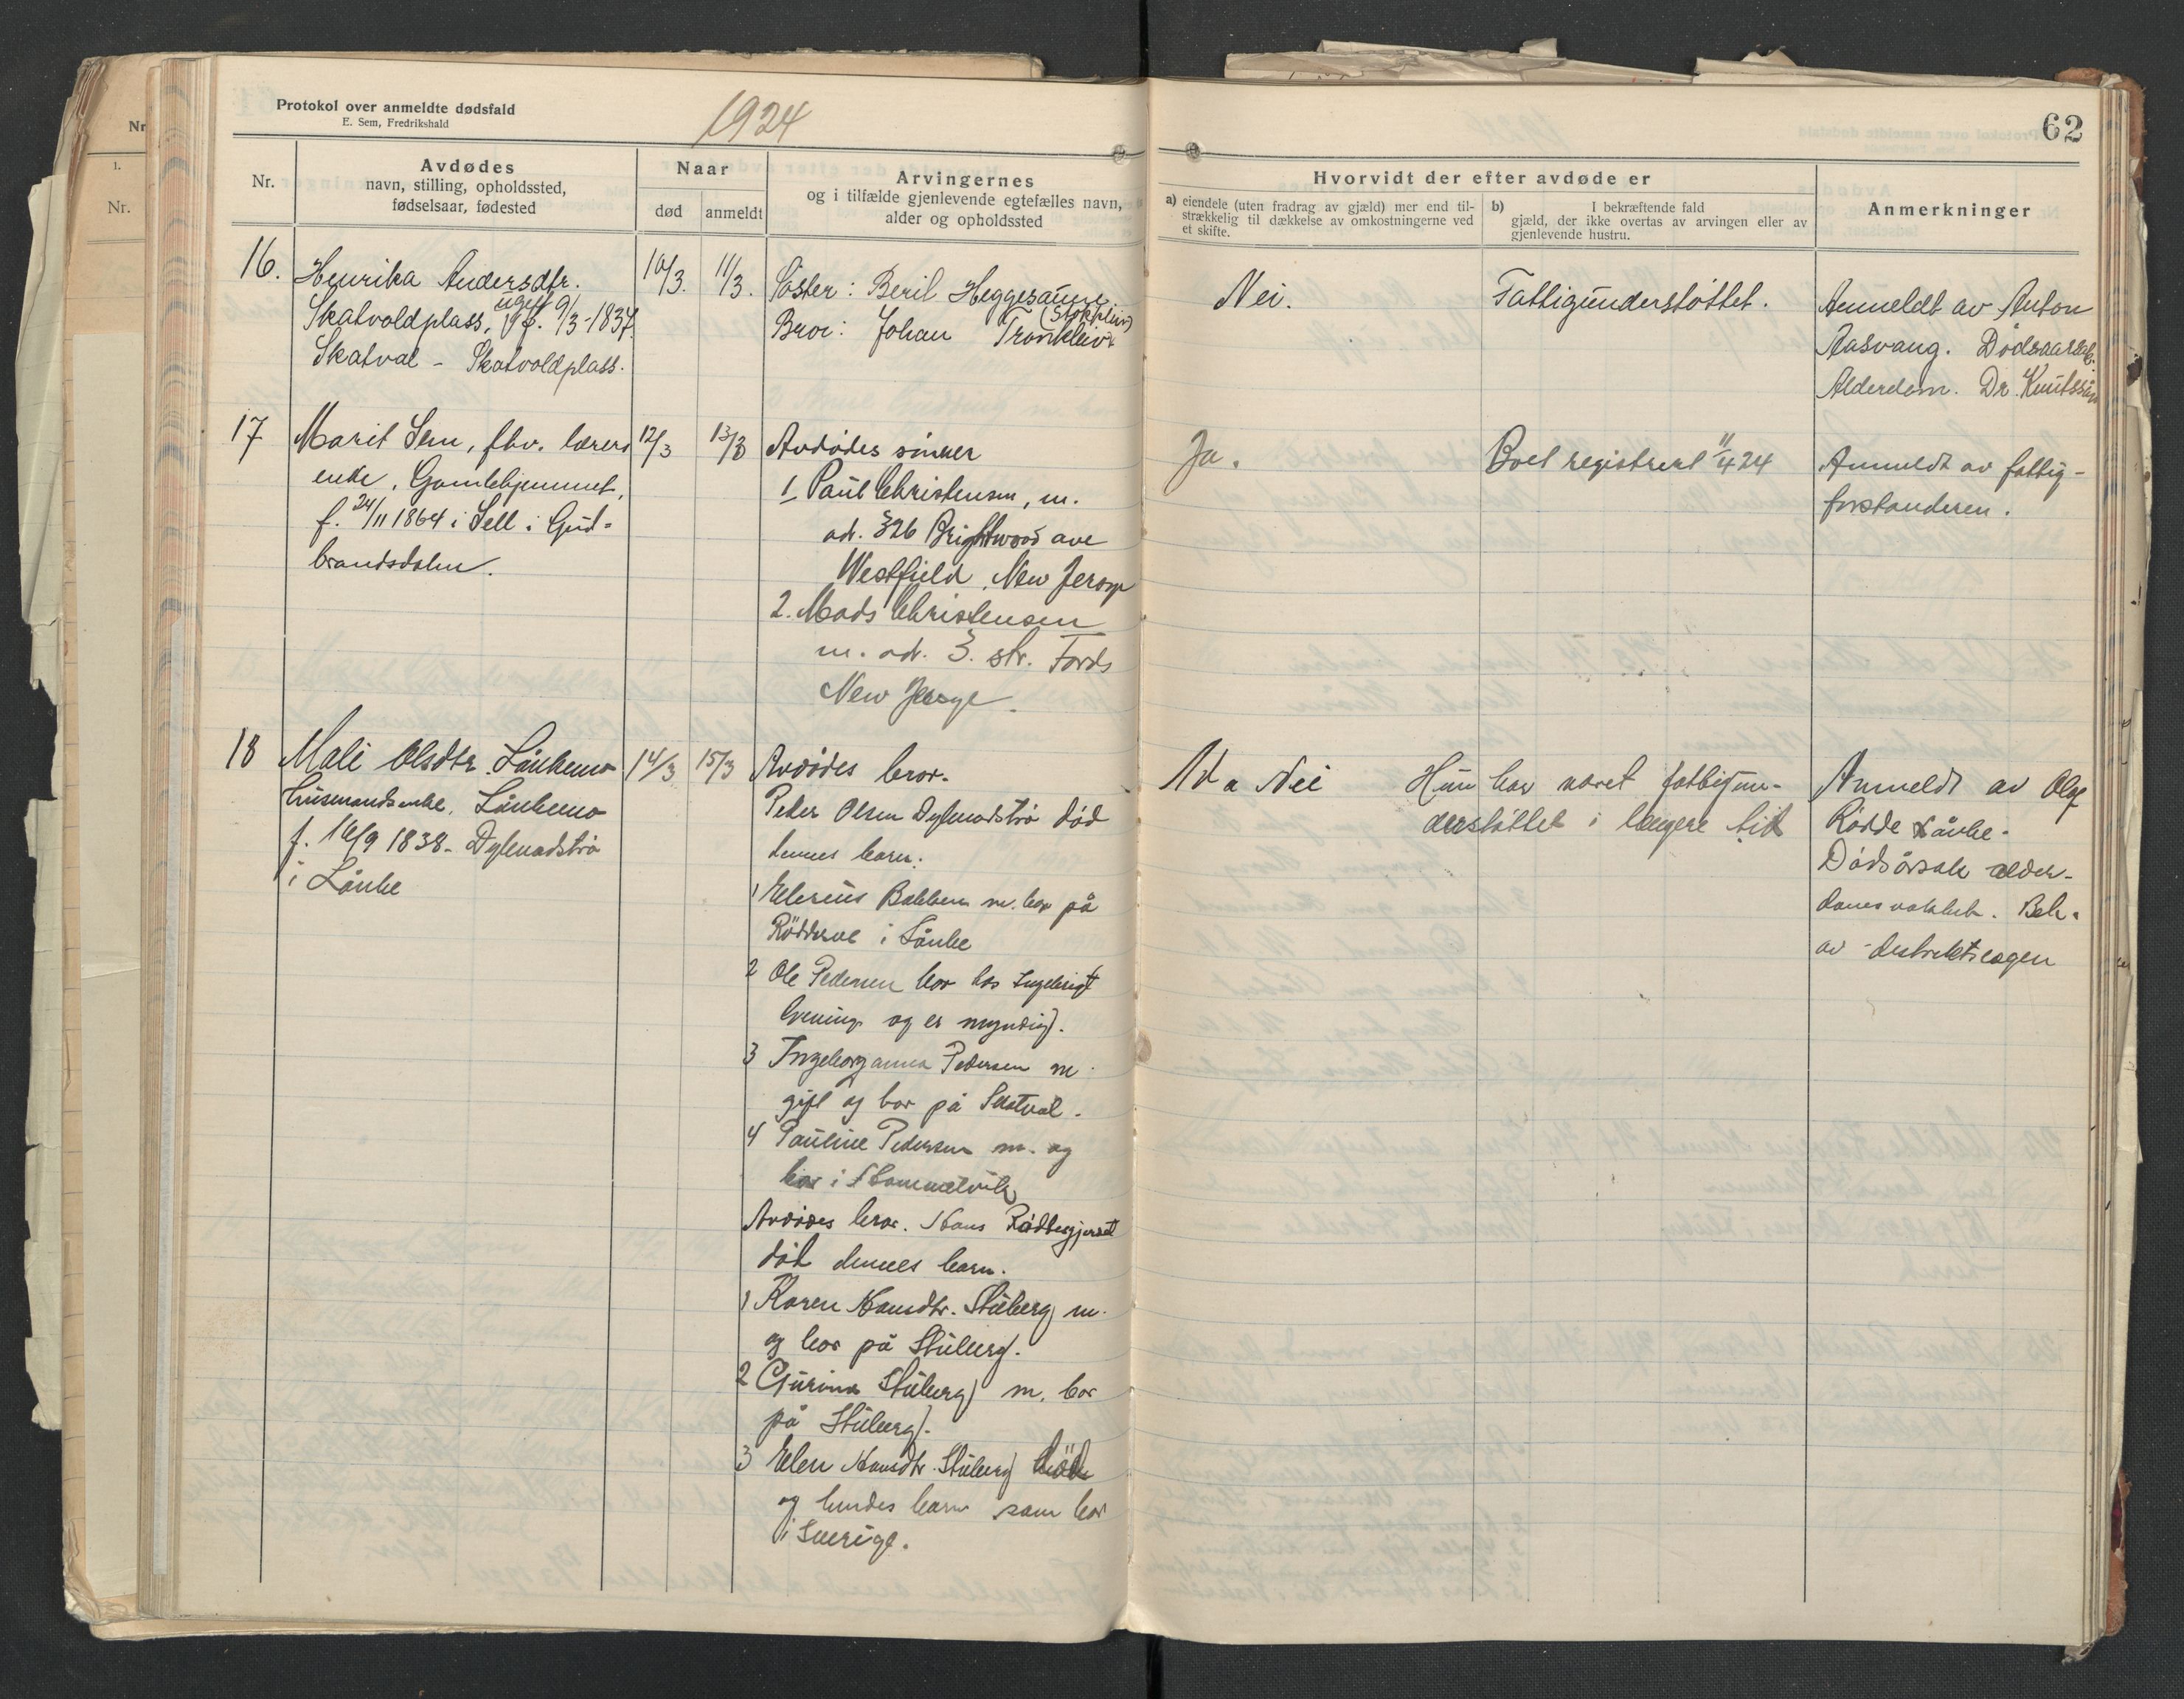 Protokol over anmeldte dødsfald
E. Sem, Fredrikshald
1924
Nr.
Avdødes
navn, stilling, opholdssted,
fødselsaar, fødested
Naar
død
anmeldt
Arvingernes
og i tilfælde gjenlevende egtefælles navn,
alder og opholdssted
16.
Henrika Andersdtr.
Skatvoldplass, ugift f. 9/3-1837.
Skatval - Skatvoldplass.
10/3.
11/3.
Søster: Beril Heggesaune
(Stokkleiv)
Bror: Johan
17
Marit Sem, fhv. lærers
enke, Gamlehjemmet,
f. 24/11 1864 i Sell i Gud-
brandsdalen.
12/3
13/3
Avdødes sinner
1 Paul Christensen, m.
ad. 326 Brightwood ave
Westfield, New Jersey
2. Mads Christensen
m. ad. 3. str. Fords
New Jersye.
18
Mali Olsdtr. Lånkemo
husmandsenke, Lånkemo
f. 16/9 1838 - Dyblvadstrø
i Lånke
14/3
15/3
Avdødes bror.
Peder Olsen død
dennes barn:
1 Elerius Bakken m. bor på
i Lånke
2 Ole Pedersen bor hos Ingebrigt
og er myndig.
3 Ingeborganna Pedersen m.
gift og bor på Skatval.
4 Pauline Pedersen m. og
bor i Hommelvik
Avdødes bror. Hans
død dennes barn.
1 Karen Hansdtr. Stuberg m.
og bor på Stuberg.
2 Gurina Stuberg m. bor
på Stuberg.
3 Elen Hansdtr. Stuberg död
og hendes barn som bor
i Sverige.
62
Hvorvidt der efter avdøde er
a) eiendele (uten fradrag av gjæld) mer end til-
strækkelig til dækkelse av omkostningerne ved
et skifte.
b) I bekræftende fald
gjæld, der ikke overtas av arvingen eller av
gjenlevende hustru.
Anmerkninger
Nei.
Fattigunderstøttet.
Anmeldt av Anton
Aasvang. Dødsaarsak:
Alderdom. Dr. Knutssøn
Ja.
Boet registrert 11/4 24
Anmeldt av fattig-
forstanderen.
Ad a Nei
Hun har været fattigun-
derstøttet i længere tid
Anmeldt av Olaf
Rødde Lånke.
Dødsårsak alder-
domssvakhet. Beh.
av distriktslægen